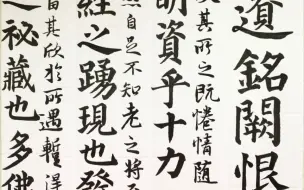 銘闕恨
及其所之既惓情隨
明資乎十力
然自足不知老之將至
經之踴現也發
當其欣於所遇暫得
之秘藏也多佛